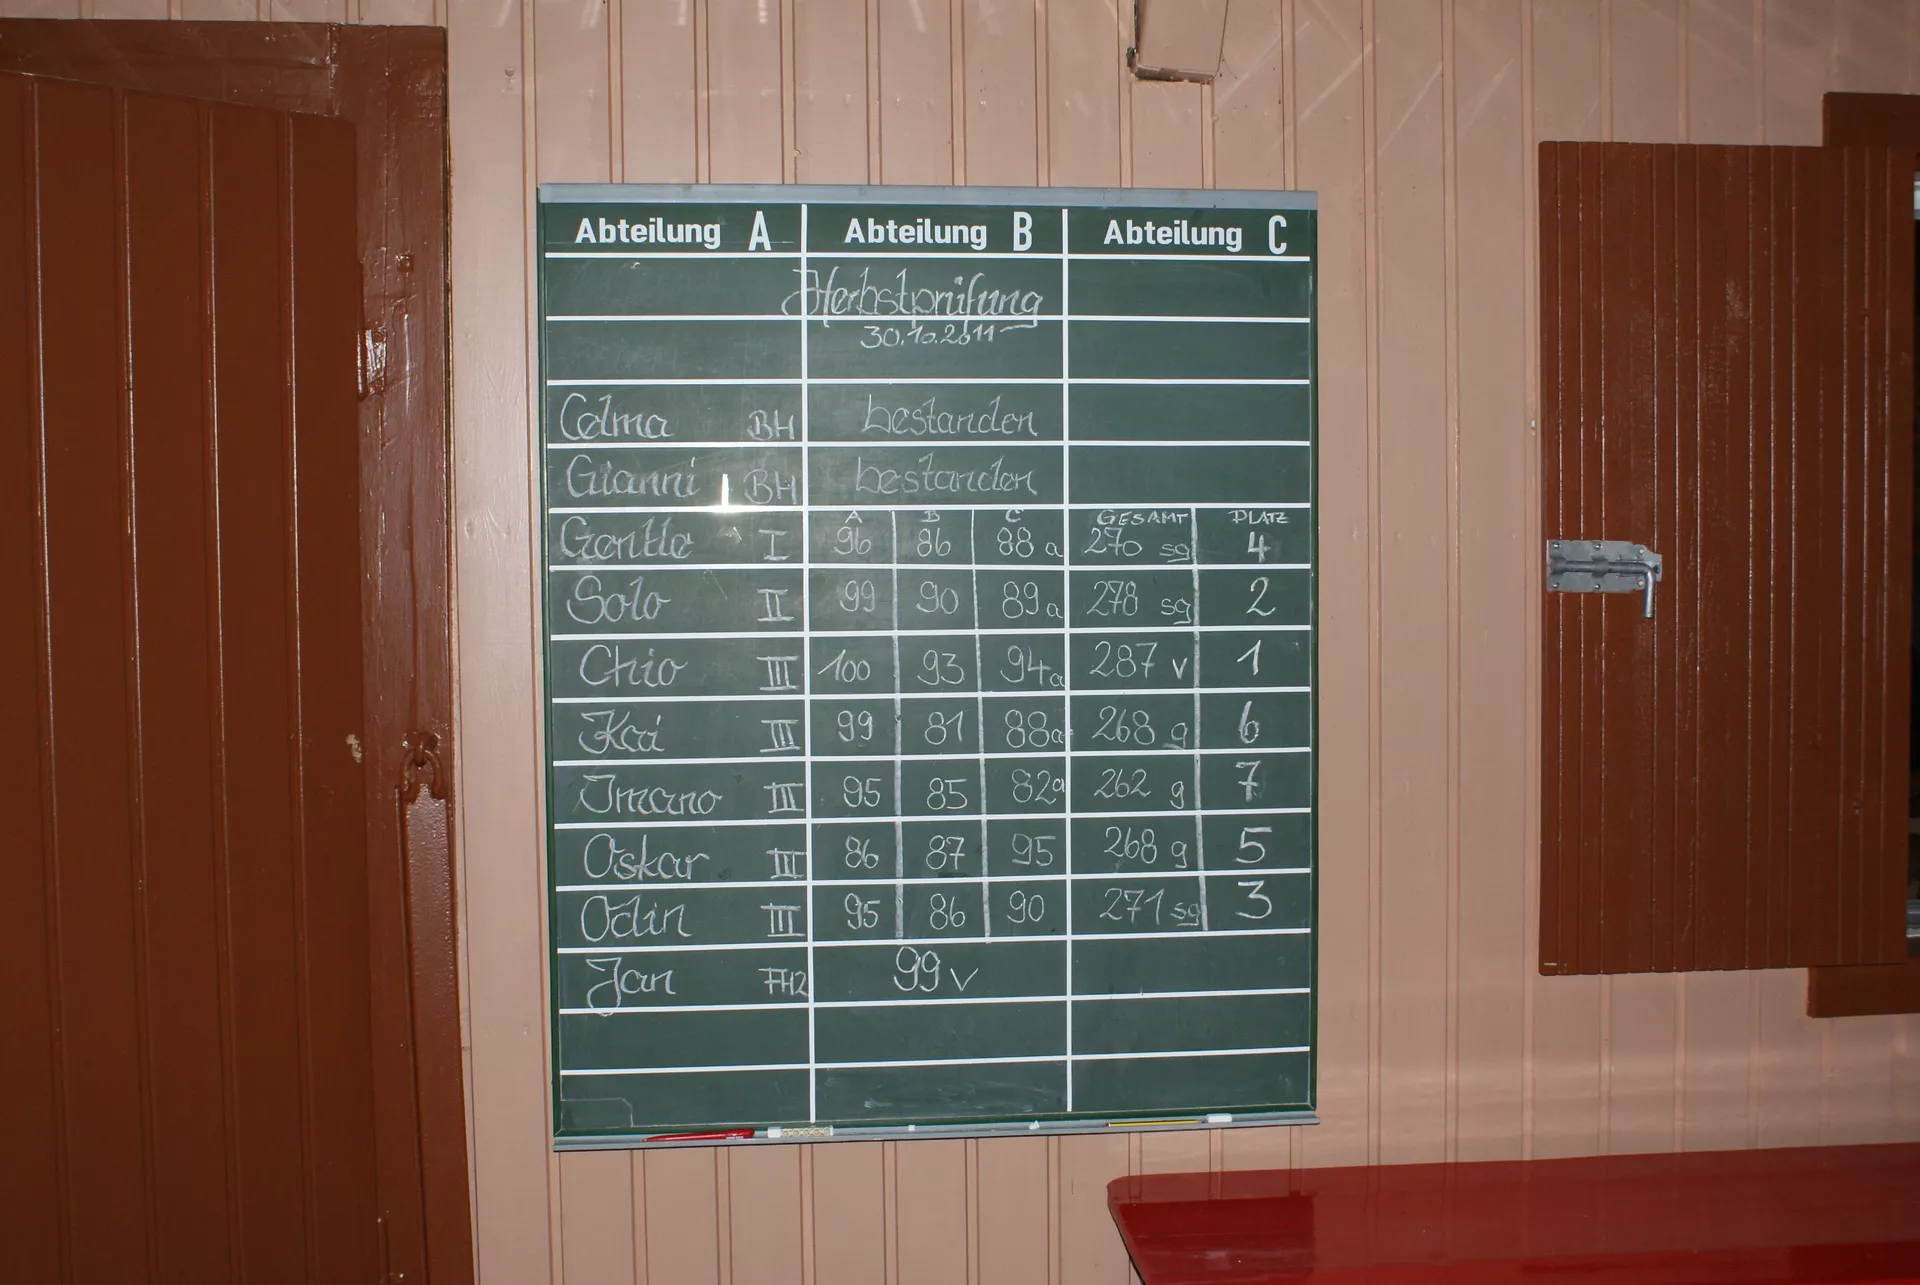 Abteilung A Abteilung B Abteilung C
Herbstprüfung
30.10.2011
Celma BH bestanden
Gianni BH bestanden
A B C GESAMT PLATZ
Gentle I 96 86 88 a 270 sg 4
Solo II 99 90 89 a 278 sg 2
Chio III 100 93 94 a 287 v 1
Kai III 99 81 88 a 268 g 6
Imano III 95 85 82 a 262 g 7
Oskar III 86 87 95 268 g 5
Odin III 95 86 90 271 sg 3
Jan FH2 99 v